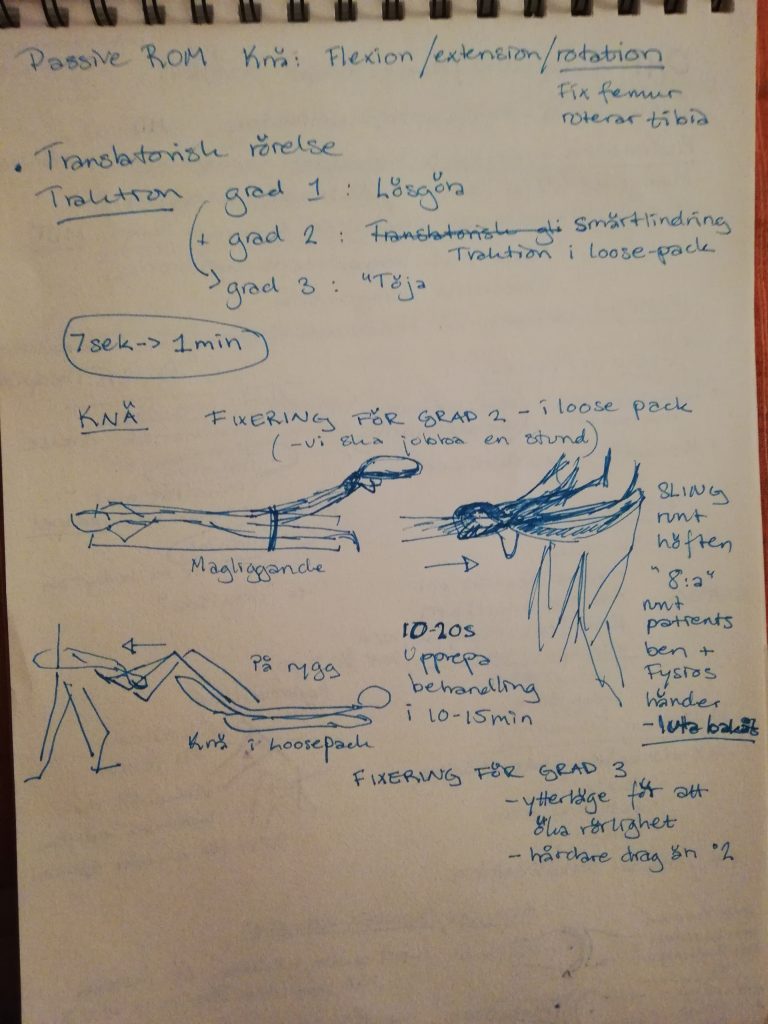 Passive ROM Knä: Flexion/extension/rotation
Fix femur
roterar tibia
• Translatorisk rörelse
Traktion grad 1 : Lösgöra
+ grad 2 : Translatorisk gli smärtlindring
Traktion i loose-pack
grad 3 : "Töja
7sek -> 1min
KNÄ FIXERING FÖR GRAD 2 - i loose pack
(-vi ska jobba en stund)
Magliggande
SLING
runt
höften
"8:a"
runt
patients
ben +
Fysios
händer
- luta bakåt
På rygg
Knä i loosepack
10-20s
Upprepa
behandling
i 10-15min
FIXERING FÖR GRAD 3
- ytterläge för att
öka rörlighet
- hårdare drag än °2